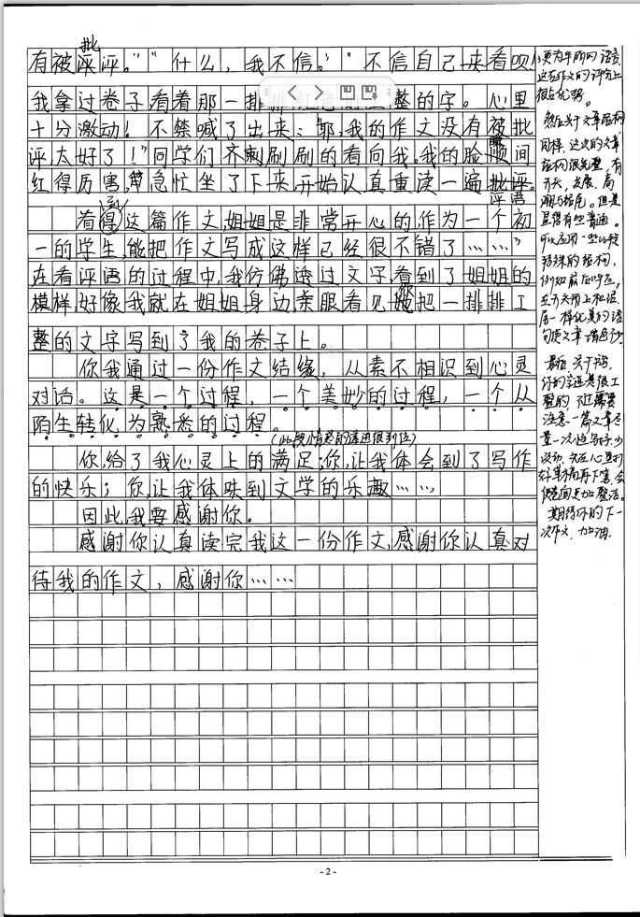 批
有被评评。""什么，我不信。""不信自己来看呗
我拿过卷子看着那一排 整的字。心里
十分激动！不禁喊了出来："耶，我的作文没有被批
评太好了！"同学们齐刷刷刷的看向我。我的脸瞬间
红得厉害，急忙坐了下来，开始认真重读一遍批评
评语
到
看得这篇作文，姐姐是非常开心的作为一个初
一的学生，能把作文写成这样已经很不错了……"
在看评语的过程中，我仿佛透过文字，看到了姐姐的
模样，好像我就在姐姐身边，亲眼看见她把一排排工
整的文字写到了我的卷子上。
你我通过一份作文结缘，从素不相识到心灵
对话。这是一个过程，一个美妙的过程，一个从
陌生转化为熟悉的过程。
（此段情感的递进很到位）
你，给了我心灵上的满足；你，让我体会到了写作
的快乐；你，让我体味到文学的乐趣……
因此，我要感谢你。
感谢你认真读完我这一份作文，感谢你认真对
待我的作文，感谢你……
然后关于文章结构
同样，这次的文章
结构很完整，有
开头，发展，高
潮和结尾。但是
显得有些普通。
可以运用一些比较
特殊的结构，
例如前后呼应，
最后，关于书
你的字迹是很工
整的，不过需要
注意一篇文章尽
量一次性写好，少
改动，先在心里打
好草稿再下笔，会
使卷面更加整洁。
期待你的下一
次作文，加油。
-2-